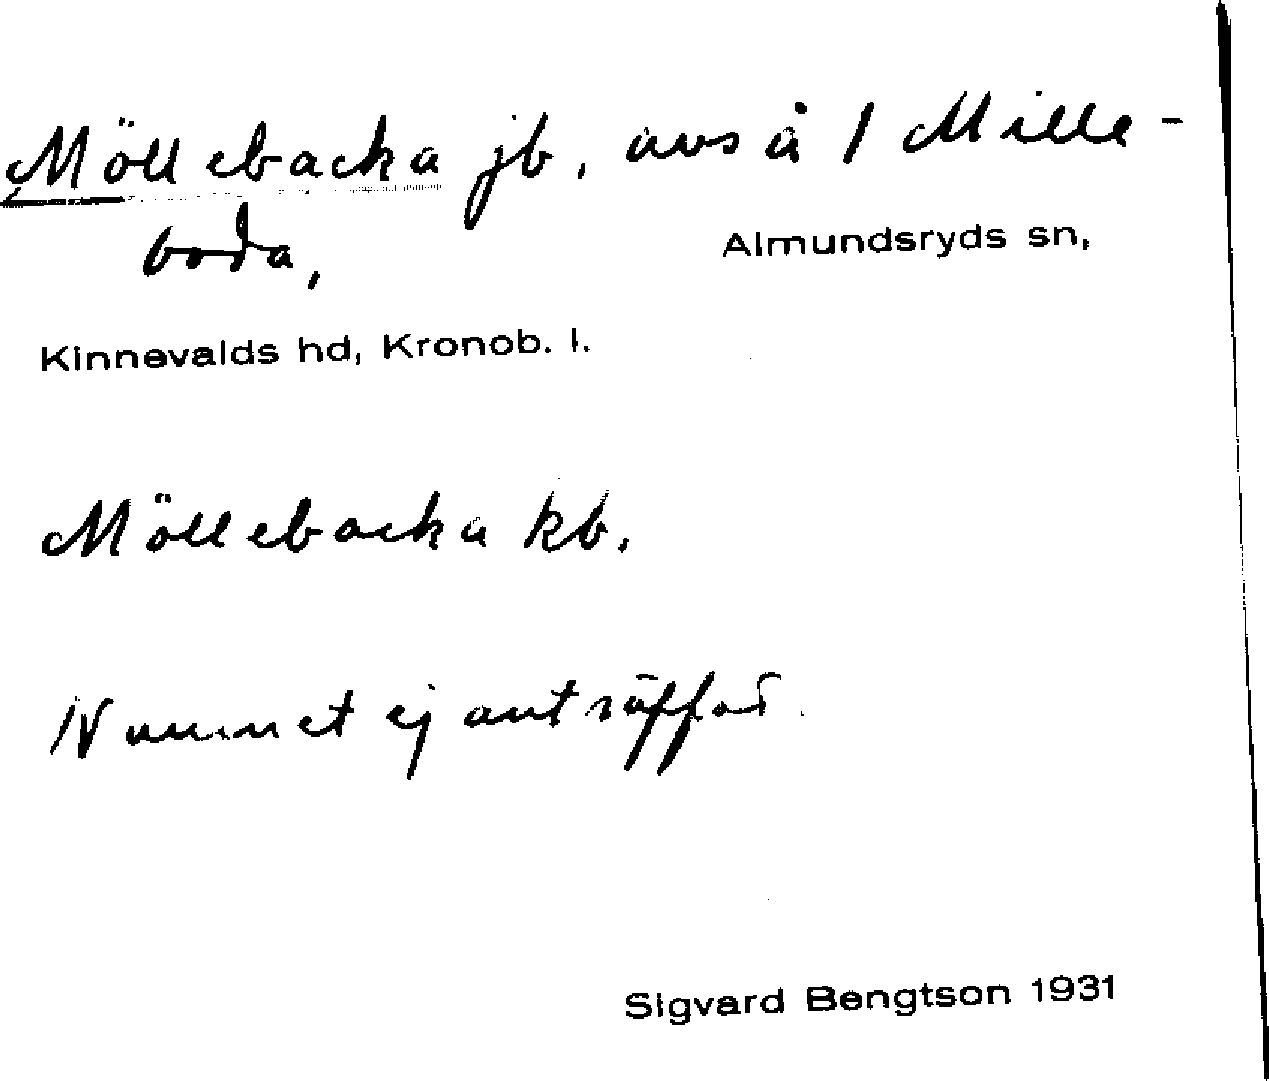 Möllebacka jb, avs å 1 Mille-
boda,
Almundsryds sn,
Kinnevalds hd, Kronob. l.
Möllebacka kb.
Namnet ej anträffad.
Sigvard Bengtson 1931